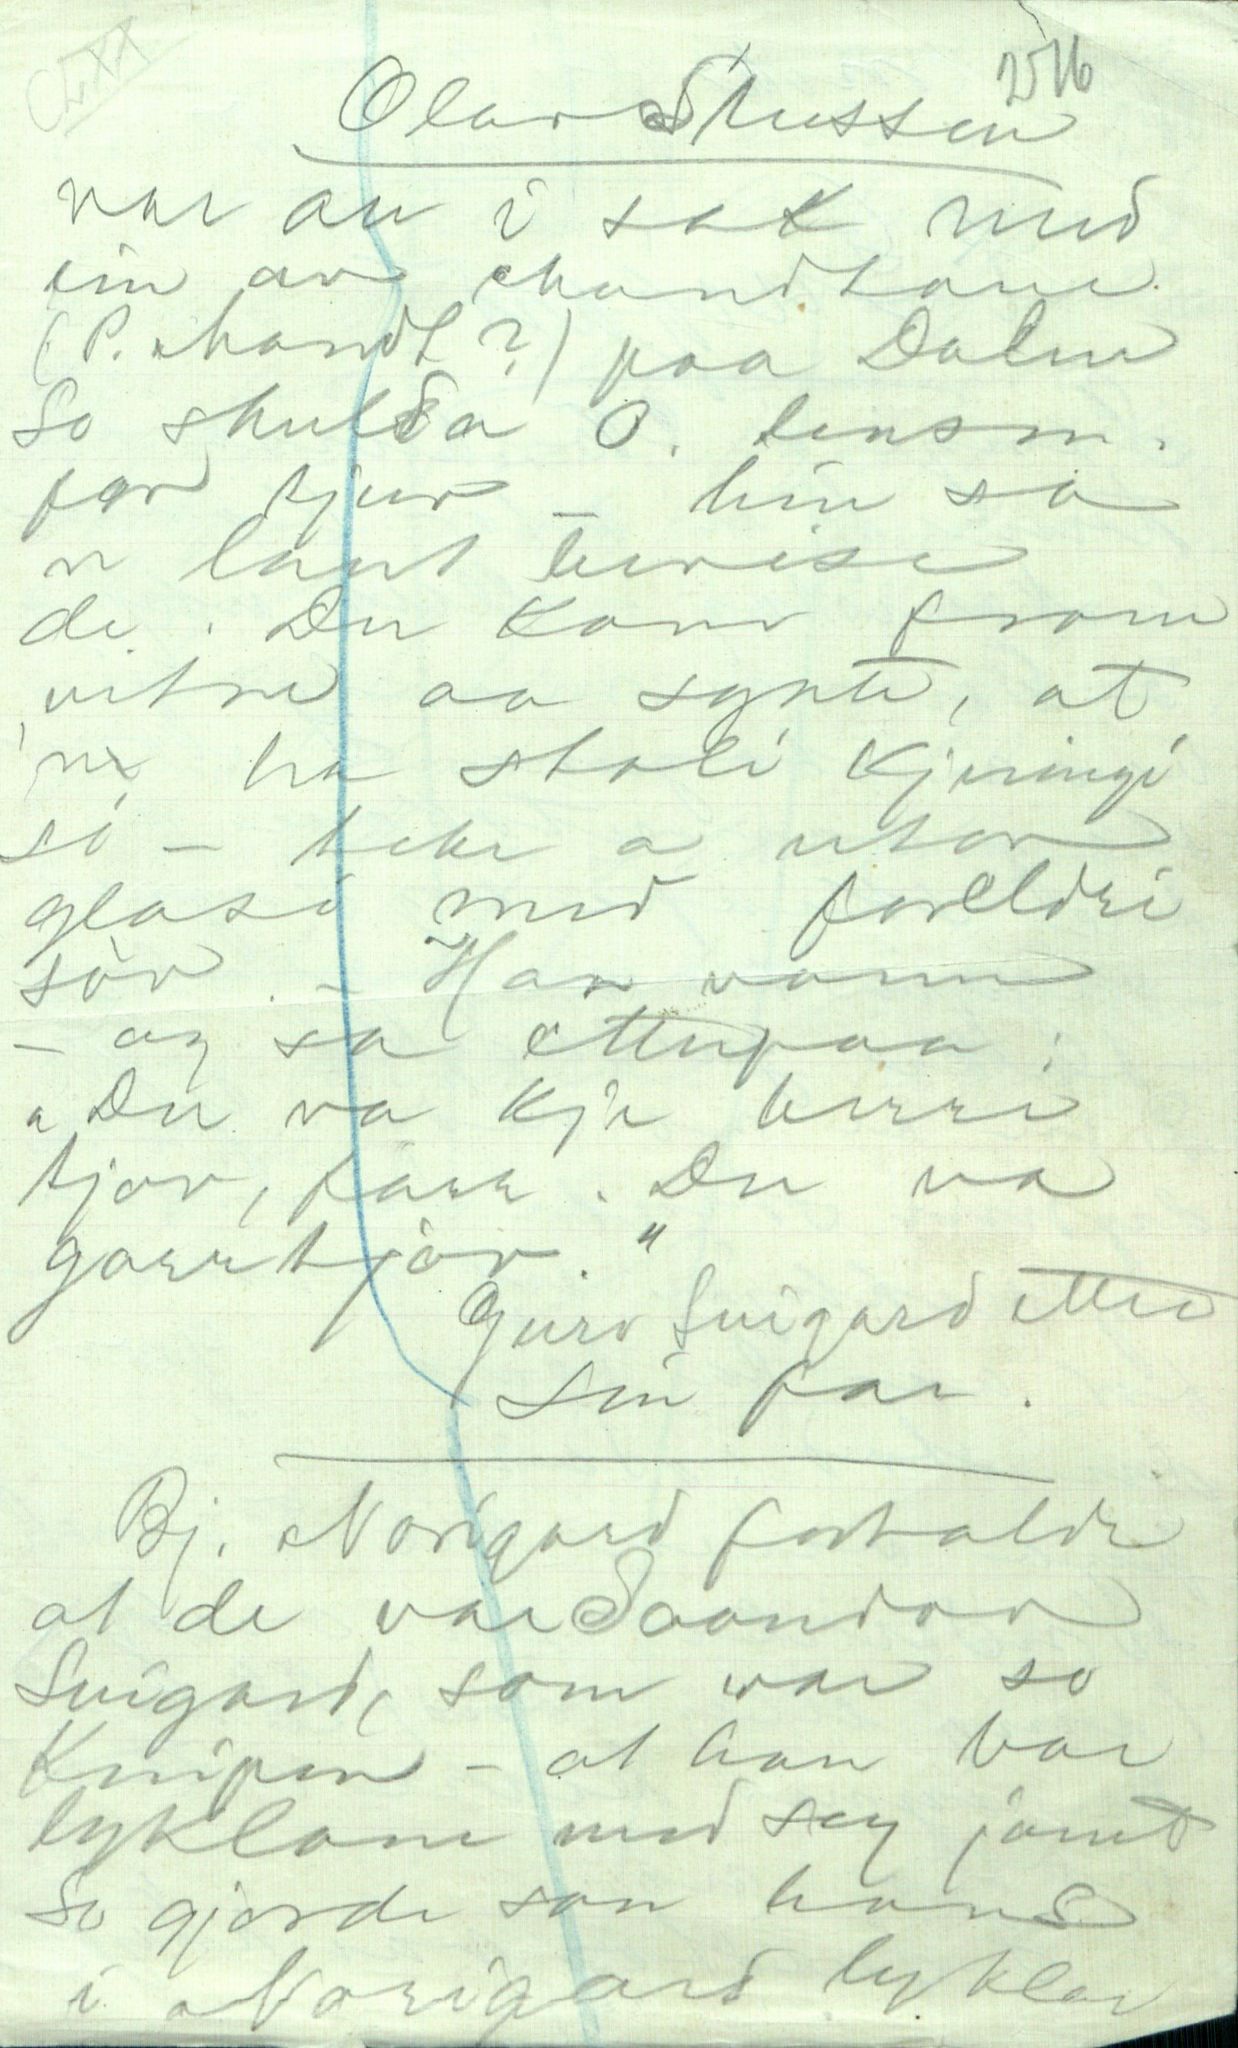 CLXX
2516
Olav Skussen
var au i sak med
ein av Mandtane
(P. Mandt?) paa Dalen
So skulda O. lensm.
for tjuv – hin sa
n laut bevise
de. Du kann fram
vitne aa synte, at
n ha stoli kjeringi
si – teke a utor
glasi med foreldri
sov. – Han vann
– og sa ettepaa:
"Du va kje berre
tjov, farr. Du va
garrtjov."
Guro Suigard etter
sin far.
Bj. Norigard fortalde
at de var Saandov
Suigard, som var so
knipen – at han bar
lyklane med seg jamt
So gjorde son hans
i Norigard lyklar